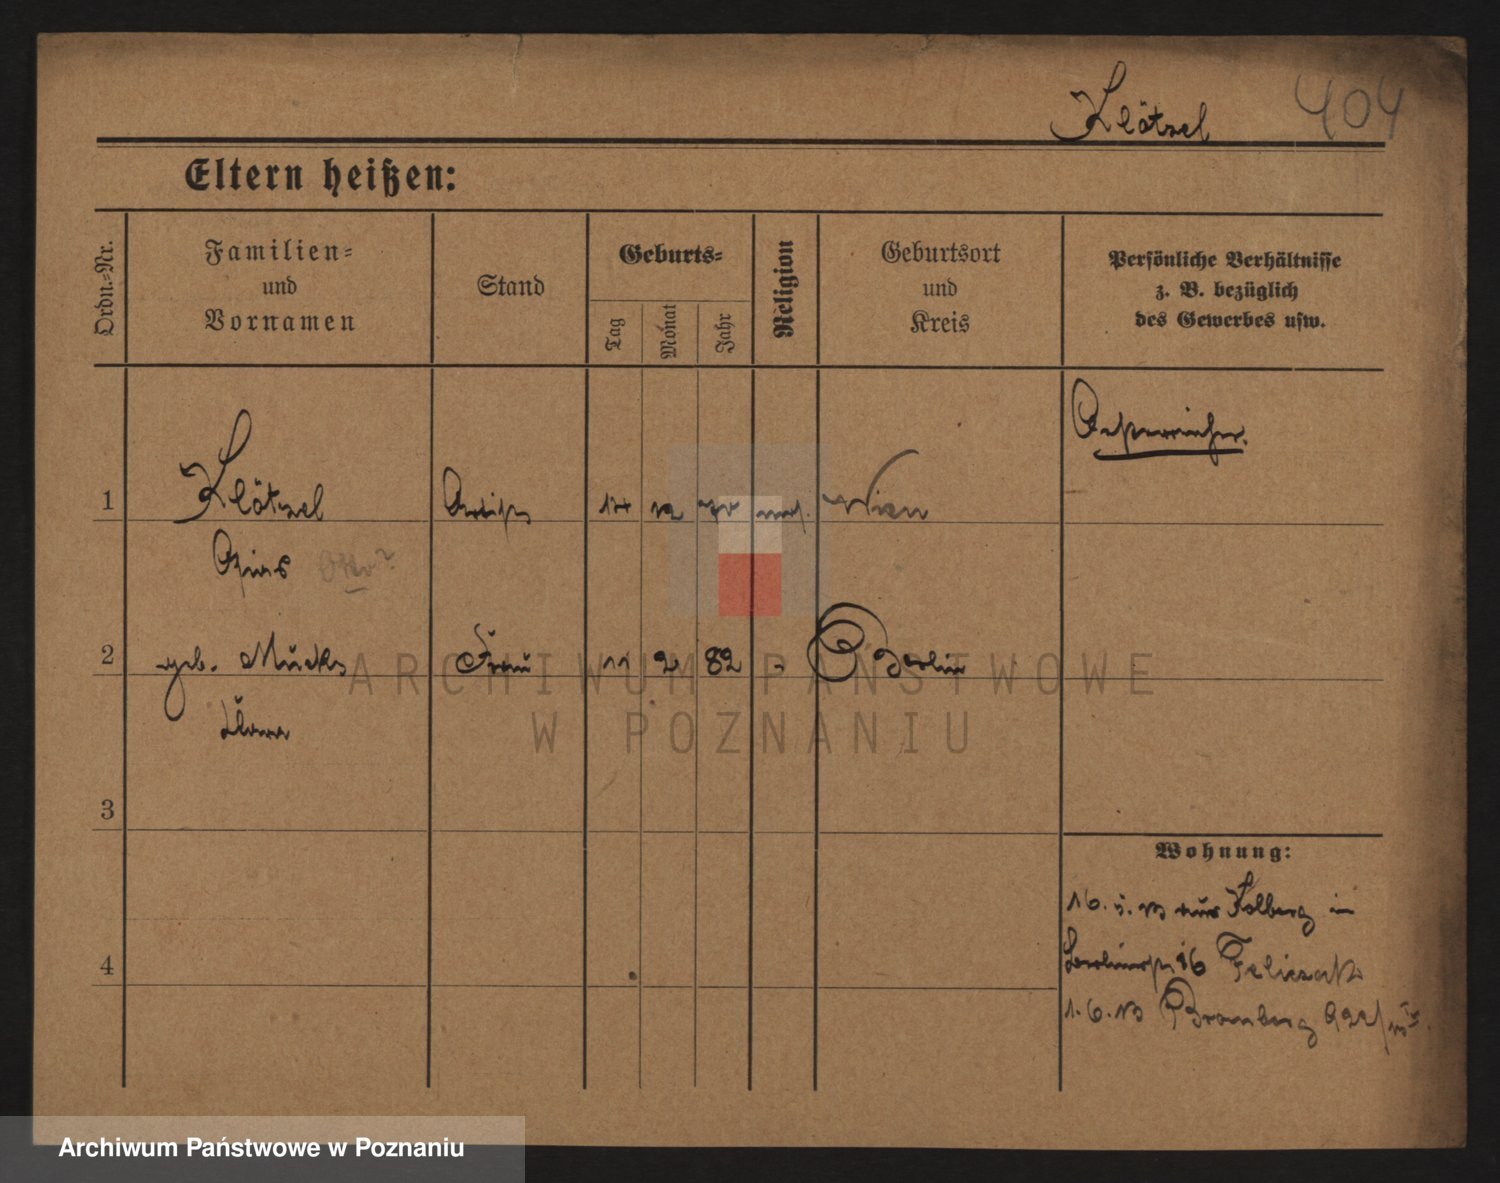 Klötzel 404
Eltern heißen:
Ordn.-Nr.
Familien-
und
Vornamen
Stand
Geburts-
Tag
Monat
Jahr
Religion
Geburtsort
und
Kreis
Persönliche Verhältnisse
z. B. bezüglich
des Gewerbes usw.
Oesterreicher.
1 Klötzel Artist 12 Wien
2 geb. Mücks Frau 11 2 82 - Berlin
3
4
Wohnung:
16. 5. 13 aus Kolberg in
Berlinerstr 16 Feliczak
1. 6. 13 Bromberg
ARCHIWUM PAŃSTWOWE
W POZNANIU
Archiwum Państwowe w Poznaniu